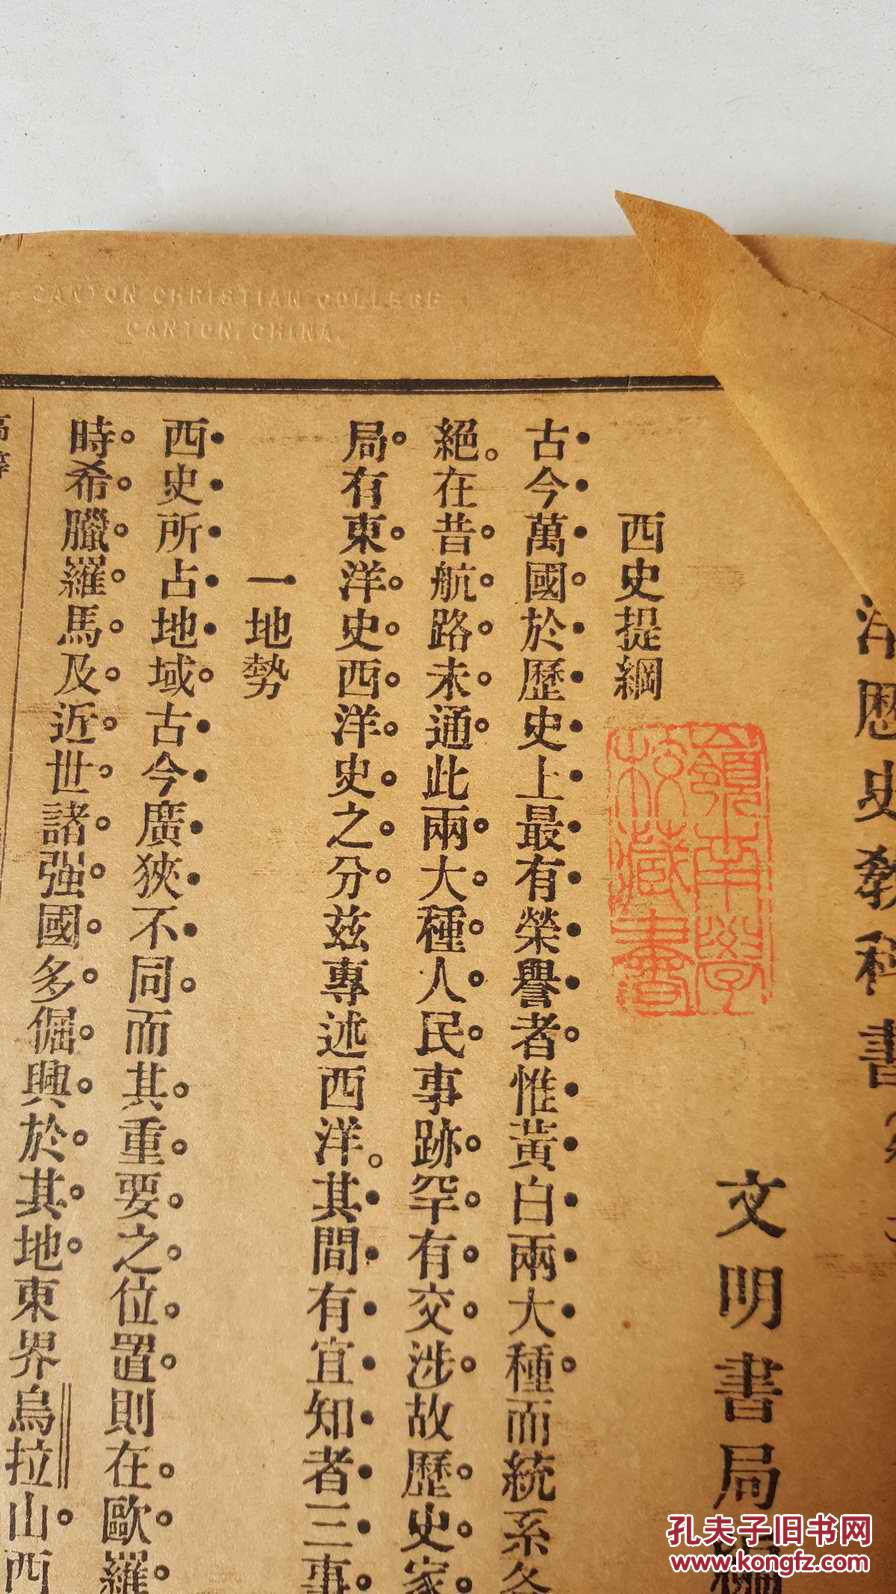 CANTON CHRISTIAN COLLEGE
CANTON, CHINA.
洋歷史教科書
文明書局編
嶺南學
校藏書
西史提綱
古今萬國於歷史上最有榮譽者惟黃白兩大種而統系各
絕在昔航路未通此兩大種人民事跡罕有交涉故歷史家
局有東洋史西洋史之分茲專述西洋其間有宜知者三事
一地勢
西史所占地域古今廣狹不同而其重要之位置則在歐羅
時希臘羅馬及近世諸强國多倔興於其地東界烏拉山西
高等
孔夫子旧书网
www.kongfz.com